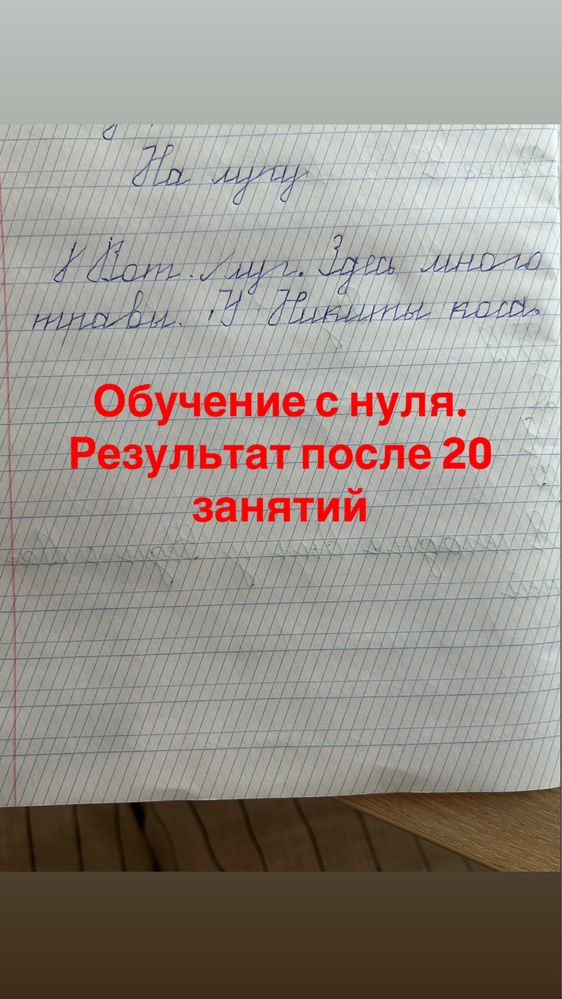 На лугу
Вот луг. Здесь много
травы. У Никиты коса.
Обучение с нуля.
Результат после 20
занятий